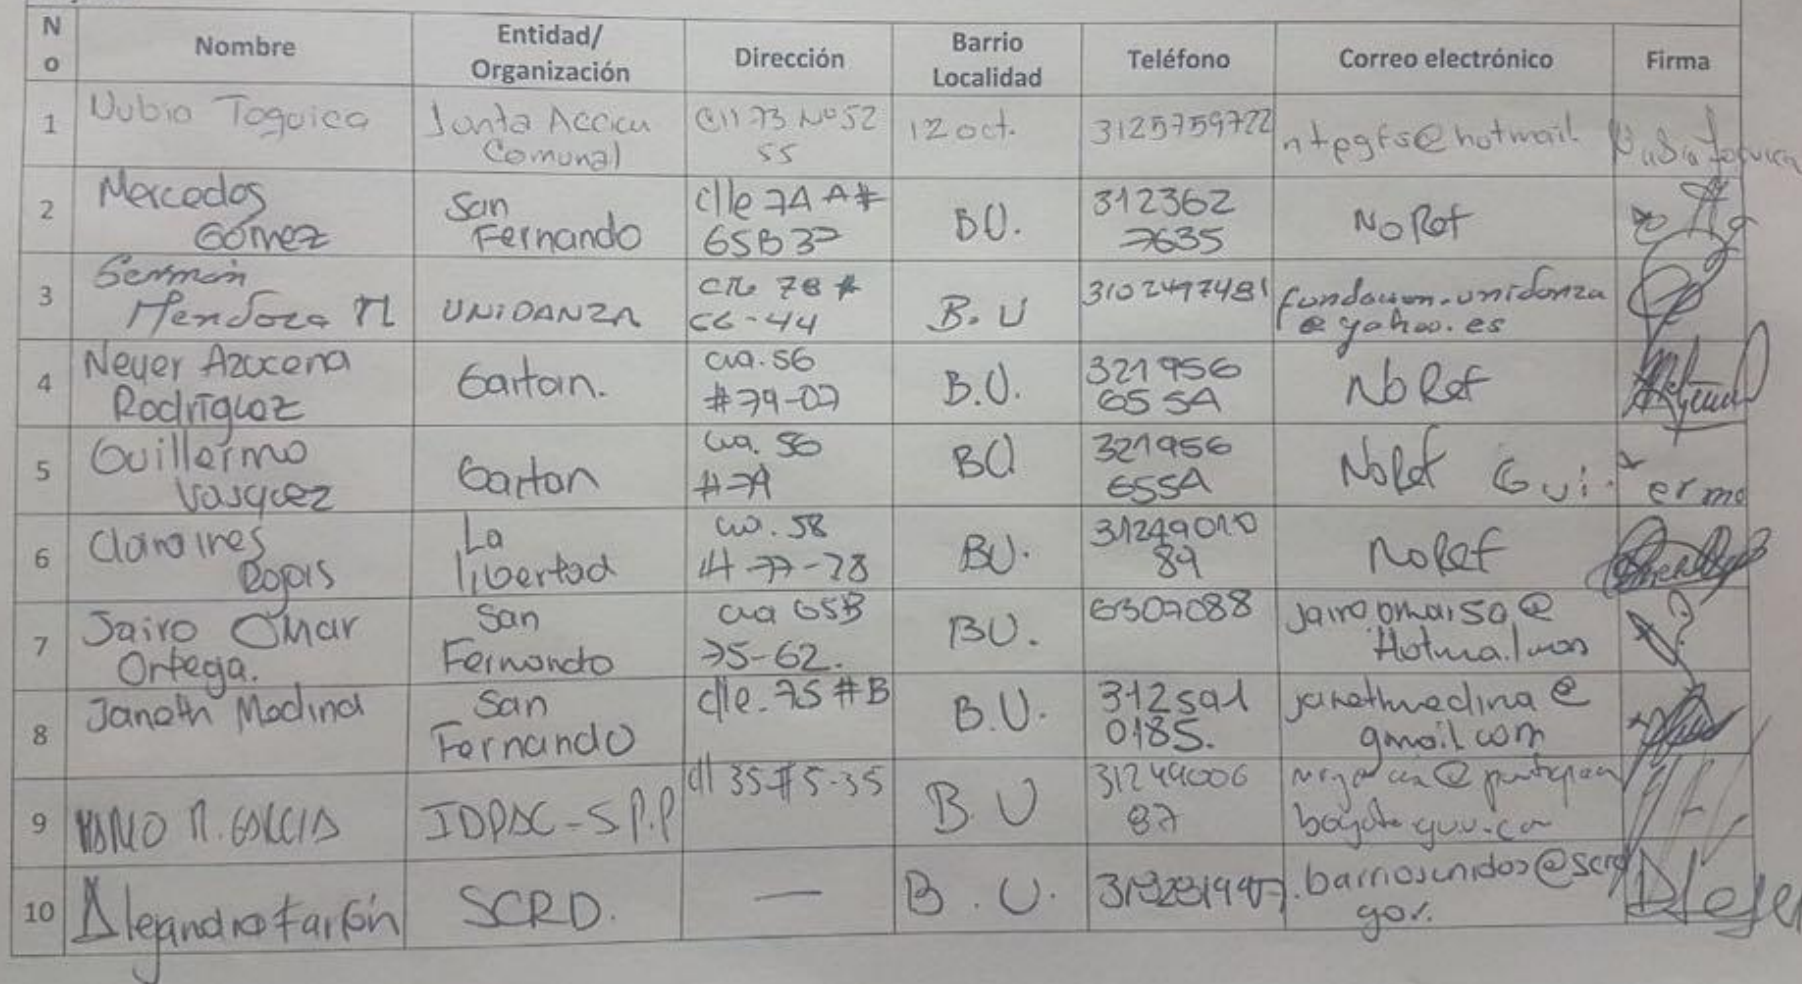 No Nombre Entidad/ Organización Dirección Barrio Localidad Teléfono Correo electrónico Firma
1 Nubia Toquica Junta Accion Comunal Cll 73 Nº 52 55 12 oct. 3125759722 ntpgfs@hotmail. Nubia Toquica
2 Mercedes Gómez San Fernando Clle 7A A# 65B 37 B.U. 312362 7635 No Ref
3 Mendoza M UNiDANZA 78 # 66-44 B.U 3102497481 fundacion.unidanza @yahoo.es
4 Neyer Azucena Rodríguez Gaitan. cra. 56 #79-07 B.U. 321956 655A No Ref
5 Guillermo Vasquez Gaitan cra. 56 #7A BU 321956 655A No Ref Guillermo
6 Clara Ines La libertad 58 77-78 BU. 31249010 89 No Ref
7 Jairo Omar Ortega. San Fernando cra 65B 75-62. BU. 6307088
8 Janeth Medina San Fernando clle. 75 #B B.U. 312591 0185. janethmedina@ gmail com
9 M. GARCIA IDPAC - S.P.P cll 35 #5-35 B.U 31244006 87
10 Alejandro SCRD. — B.U. .barriosunidos@scrd